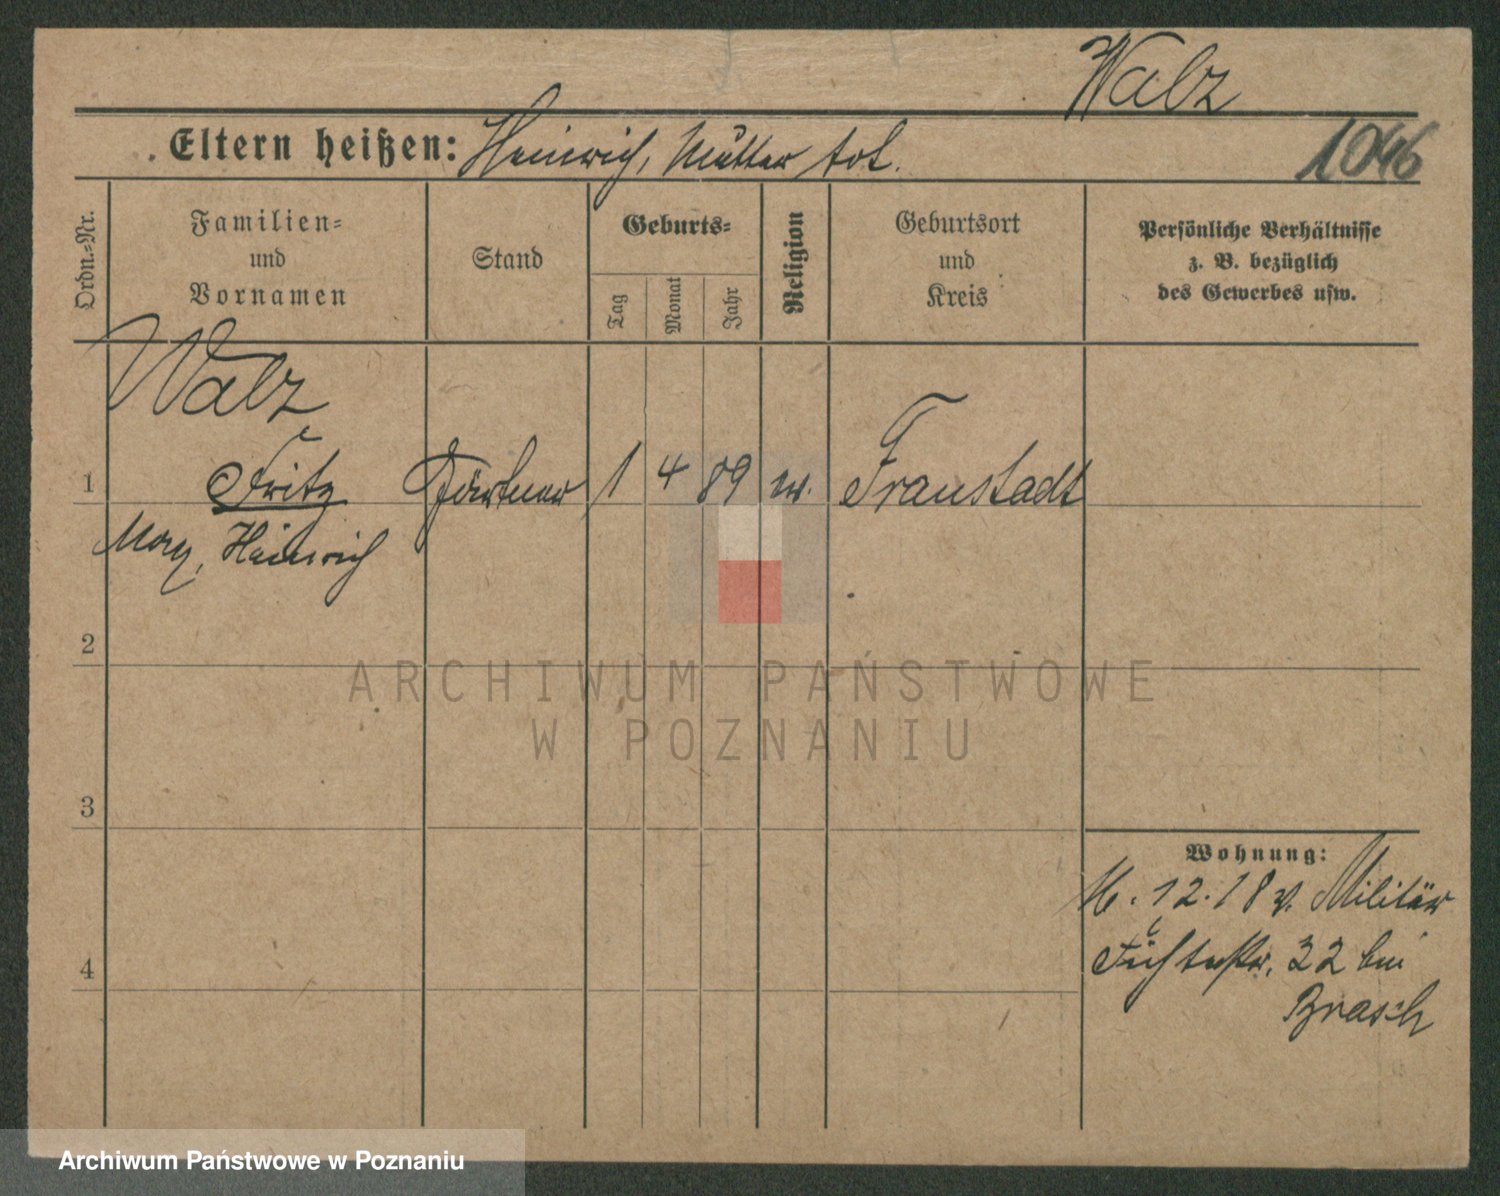 Walz
Eltern heißen: Heinrich, Mutter tot.
1046
Ordn.=Nr.
Familien=
und
Vornamen
Stand
Geburts=
Tag
Monat
Jahr
Religion
Geburtsort
und
Kreis
Persönliche Verhältnisse
z. B. bezüglich
des Gewerbes usw.
Walz
1 Fritz Gärtner 1 4 89 Fraustadt
Max, Heinrich
2
3
4
Wohnung:
12.18 v. Militär
Fichtestr. 22 bei
Brasch
ARCHIWUM PAŃSTWOWE
W POZNANIU
Archiwum Państwowe w Poznaniu